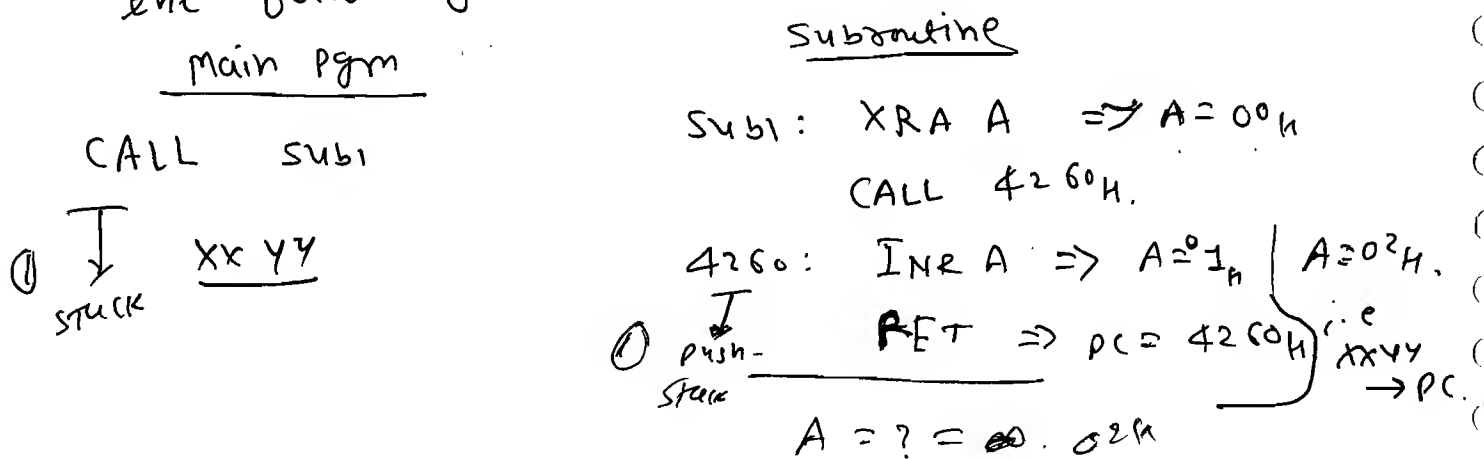 Main Pgm
CALL SUB1
① XX YY
STACK
Subroutine
SUB1: XRA A => A = 00H
CALL 4260H.
4260: INR A => A = 01H | A = 02H.
① Push- RET => PC = 4260H i.e XXYY → PC.
Stack
A = ? = 02H